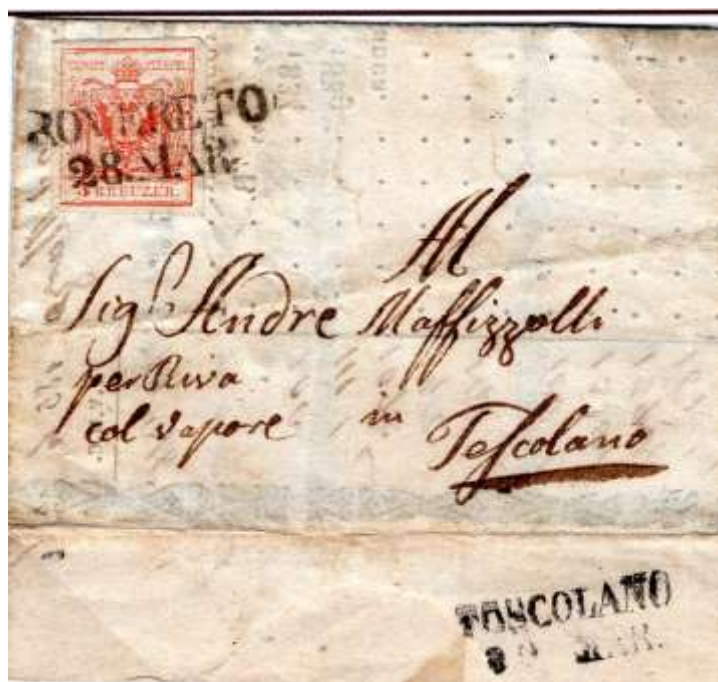 ROVERETO
28. MAR.
3 KREUZER.
Al
Sigr. Andre Maffizzolli
per Riva
col vapore in Toscolano
TOSCOLANO
MAR.